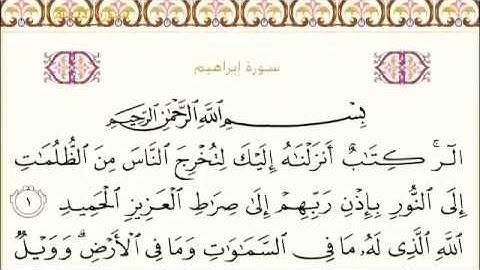 سورة إبراهيم
بِسْمِ اللَّهِ الرَّحْمَٰنِ الرَّحِيمِ
الٓر ۚ كِتَابٌ أَنزَلْنَاهُ إِلَيْكَ لِتُخْرِجَ النَّاسَ مِنَ الظُّلُمَاتِ
إِلَى النُّورِ بِإِذْنِ رَبِّهِمْ إِلَىٰ صِرَاطِ الْعَزِيزِ الْحَمِيدِ ١
اللَّهِ الَّذِي لَهُ مَا فِي السَّمَاوَاتِ وَمَا فِي الْأَرْضِ ۗ وَوَيْلٌ